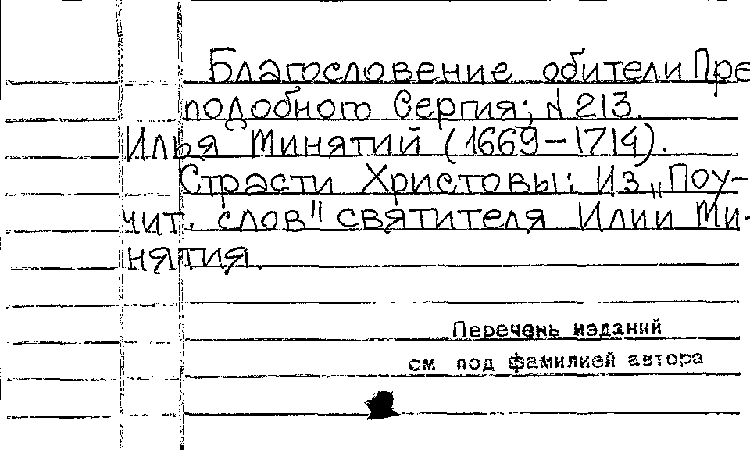 Благословение обители Пре
подобного Сергия; N 213.
Илья Минятий (1669-1714).
Страсти Христовы: Из "Поу-
чит. слов" святителя Илии Ми-
нятия.
Перечень изданий
см под фамилией автора